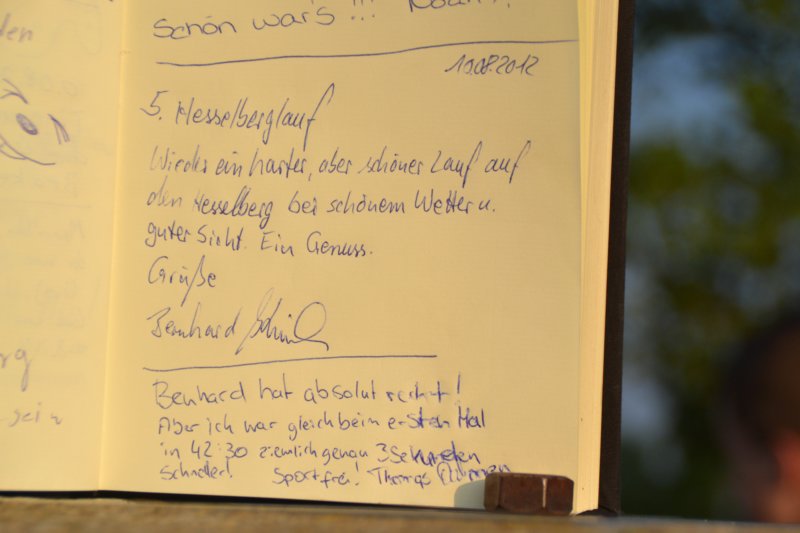 den
schön war's !!!
10.08.2012
5. Hesselberglauf
Wieder ein harter, aber schöner Lauf auf
den Hesselberg bei schönem Wetter u.
guter Sicht. Ein Genuss.
Grüße
Bernhard
Benhard hat absolut recht!
Aber ich war gleich beim ersten Mal
in 42:30 ziemlich genau 3 Sekunden
schneller! Sportfrei! Thomas
rg
sein